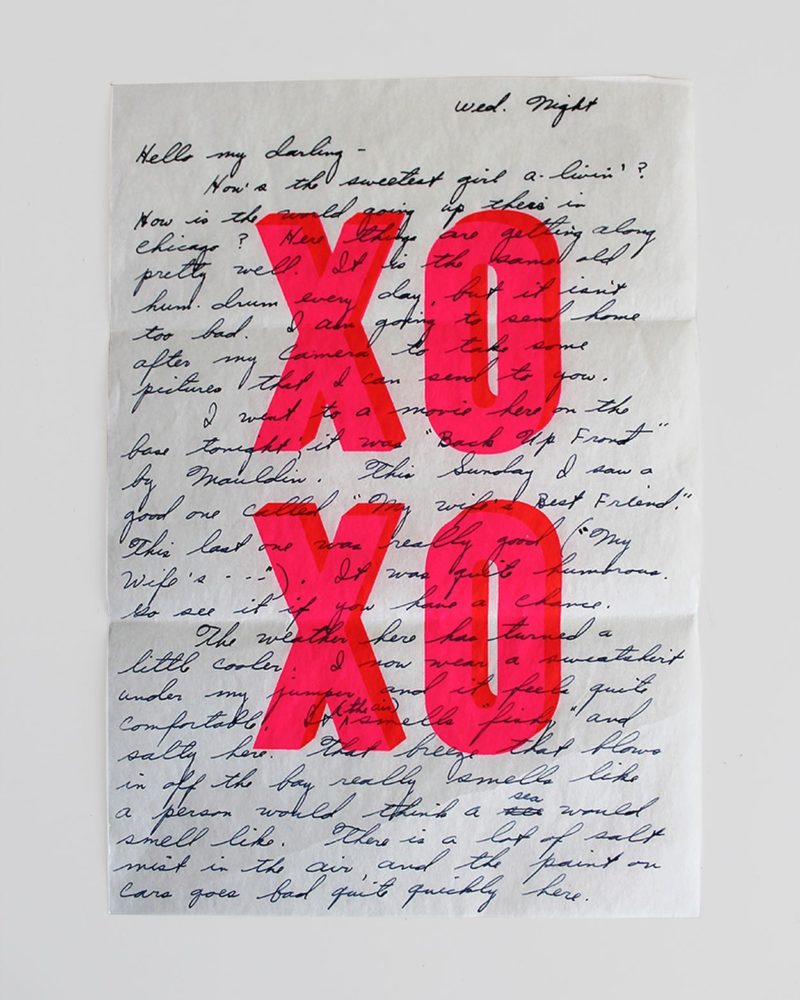 Wed. Night
Hello my darling -
How's the sweetest girl a-livin'?
How is the world going up there in
Chicago? Here things are getting along
pretty well. It is the same old
hum-drum every day, but it isn't
too bad. I am going to send home
after my camera to take some
pictures that I can send to you.
I went to a movie here on the
base tonight; it was "Back Up Front"
by Mauldin. This Sunday I saw a
good one called "My wife's Best Friend."
This last one was really good ("My
Wife's ---"). It was quite humorous.
Go see it if you have a chance.
The weather here has turned a
little cooler. I now wear a sweatshirt
under my jumper, and it feels quite
comfortable. It (the air) smells "fishy" and
salty here. That breeze that blows
in off the bay really smells like
a person would think a sea would
smell like. There is a lot of salt
mist in the air, and the paint on
cars goes bad quite quickly here.
XO
XO